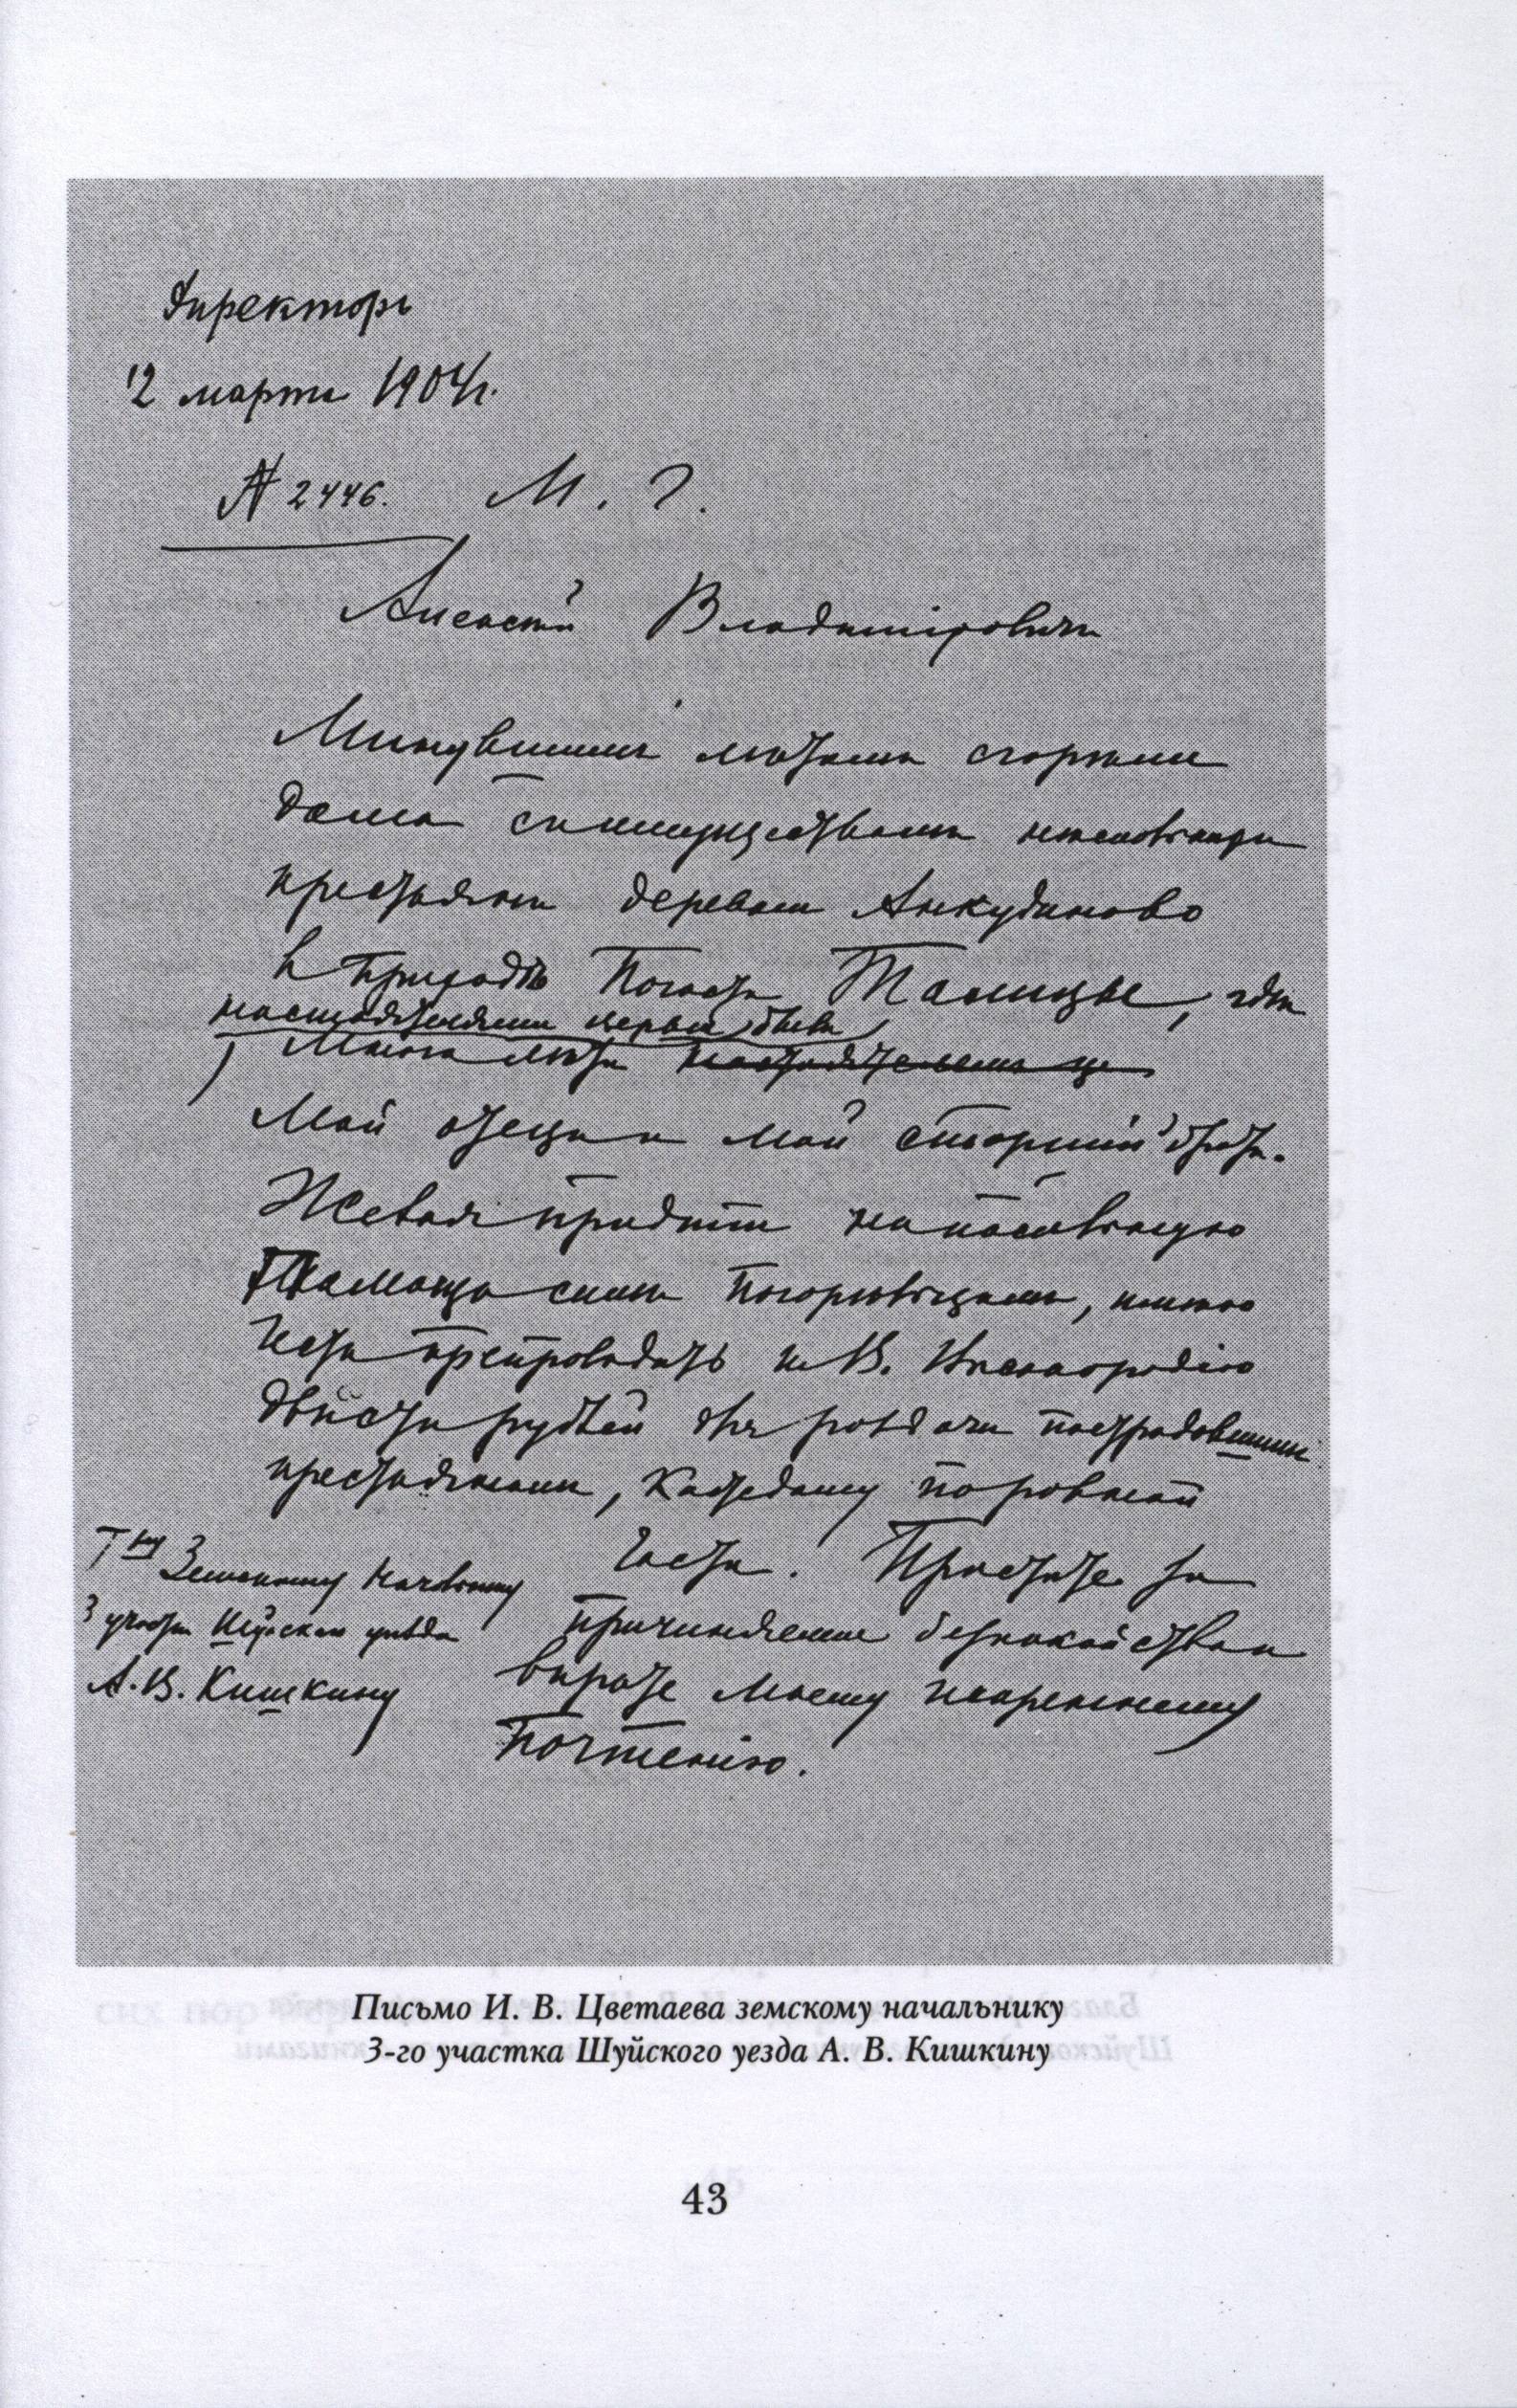 Директоръ
12 марта 1904 г.
№ 2446. М. Г.
Алексѣй Владиміровичъ
Минувшимъ лѣтомъ сгорѣли
дома съ имуществомъ нѣсколькихъ
крестьянъ деревни Анкудиново
въ приходѣ Погоста Талицы, гдѣ
настоятелями церкви были
много лѣтъ настоятелями це
мой отецъ и мой старшій братъ.
Желая придти на посильную
помощь симъ погорѣльцамъ, имѣю
честь препроводить къ В. Высокородію
двѣсти рублей для раздачи пострадавшимъ
крестьянамъ, каждому по равной
части. Простите за
причиняемое безпокойство и
вѣрьте моему искреннему
почтенію.
Г-ну Земскому Начальнику
3 участка Шуйскаго уѣзда
А. В. Кишкину
Письмо И. В. Цветаева земскому начальнику
3-го участка Шуйского уезда А. В. Кишкину
43